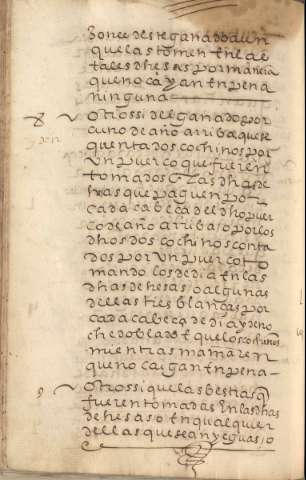 deste ganado aun
que las tomen en la e
tales dhesas por mancia
que no cayan en pena
ninguna
8 otrossi del ganado por
cuno de año arriba que se
quentados cochinos por
un puerco que fueren
tomados En las dhas de
hesas que paguen por
cada cabeça del dho puer
co de año arriba / o por los
dhos dos cochinos conta
dos por un puerco to
mando los de dia en las
dhas dehesas / o algunas
dellas tres blancas por
cada cabeça de dia y de no
che doblado E que los cochinos
mientras mamaren
que no caigan en pena
9 otrossi que las bestias q
fueren tomadas En las dhas
dehesas o en qualquier
dellas que sean yeguas / o